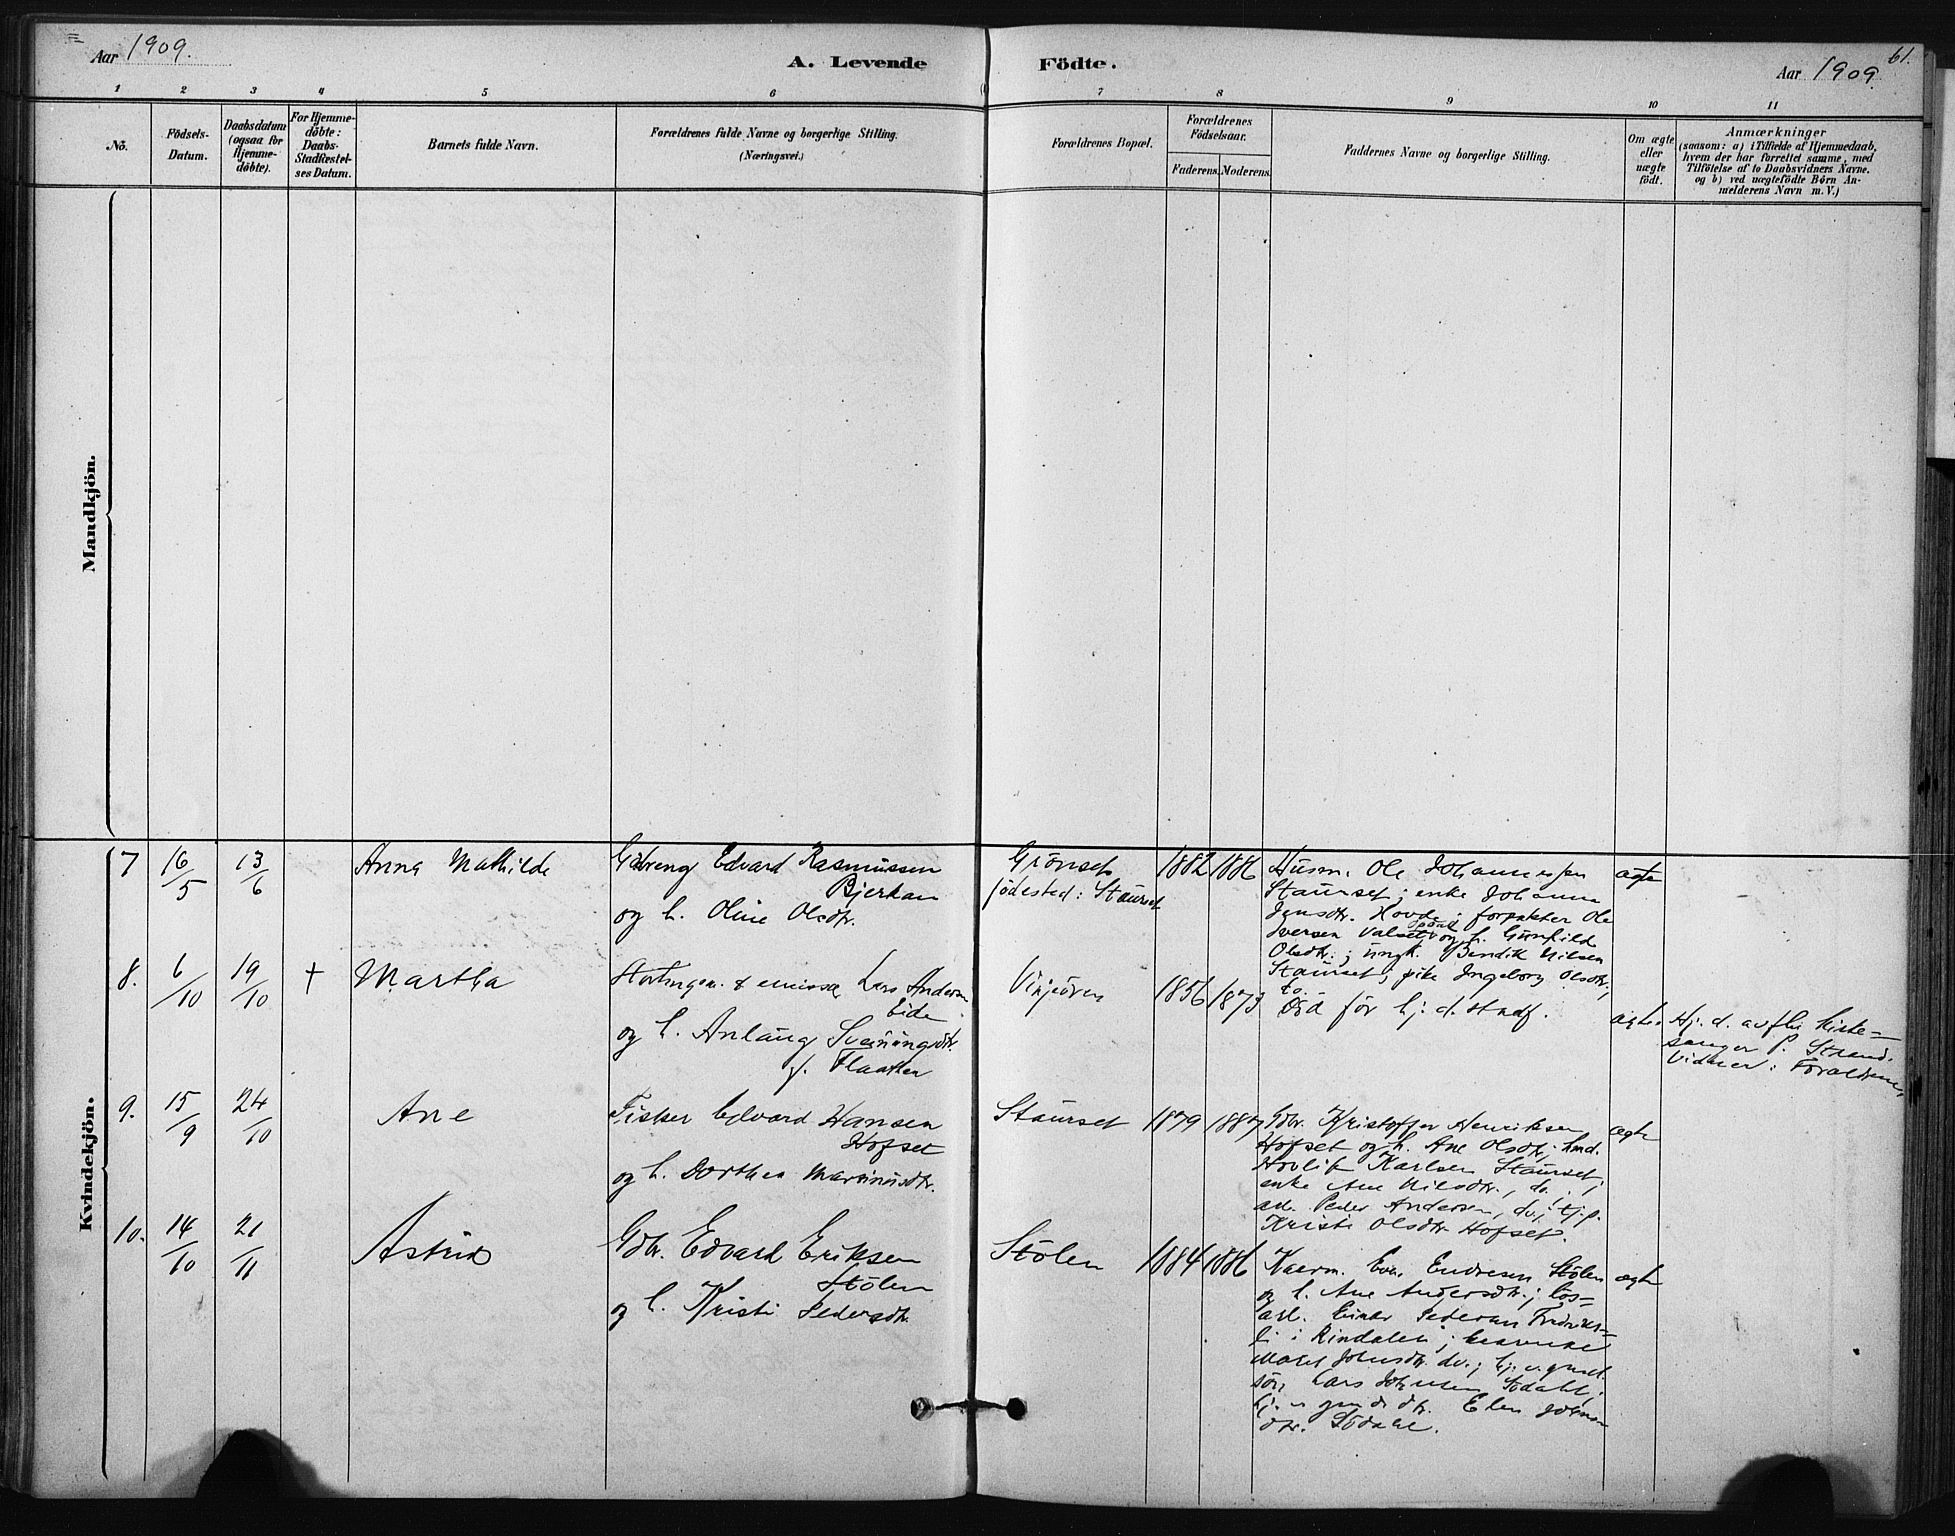 Aar 1909.
A. Levende Födte.
Aar 1909.
61.
1 2 3 4 5 6 7 8 9 10 11
No.
Födsels-
Datum.
Daabsdatum
(ogsaa for
Hjemme-
döbte).
For Hjemme-
döbte:
Daabs-
Stadfæstel-
ses Datum.
Barnets fulde Navn.
Forældrenes fulde Navne og borgerlige Stilling.
(Næringsvei.)
Forældrenes Bopæl.
Forældrenes
Födselsaar.
Faderens. Moderens.
Faddernes Navne og borgerlige Stilling.
Om ægte
eller
uægte
födt.
Anmærkninger
(saasom: a) i Tilfælde af Hjemmedaab,
hvem der har forrettet samme, med
Tilföielse af to Daabsvidners Navne.
og b) ved uægtefödte Börn An-
melderens Navn m. V.)
Mandkjön.
Kvindekjön.
7 16/5 13/6 Anna Mathilde
Edvard Rasmussen
Bjerkan
og h. Oline Olsdtr.
Grönset
födested: Staurset
1882 1886
Husm. Ole Johannessen
Staurset; enke Johanna
Jensdtr. Hovde; forpakter Ole
Iversen Valset og h. Gunhild
Olsdtr.; ungk. Bendik Nilsen
Staurset; pike Ingeborg Olsdtr.,
do.
ægte
8. 6/10 19/10 † Martha
Stortingsm. & emissær Lars Andersen
Eide
og h. Anlaug Sveinungsdtr.
f. Flaathen
Vinjeören
1856 1873
Död før hj. d. stadf.
ægte.
Hj. d. av fhv. kirke-
sanger P. Strand.
Vidner: Forældrene.
9. 15/9 24/10 Ane
Fisker Edvard Hansen
Hofset
og h. Dorthea Marinusdtr.
Staurset
1879 1887
Gbr. Kristoffer Henriksen
Hofset og h. Ane Olsdtr.; hmd.
Karlsen Staurset;
enke Ane Nilsdtr., do.;
arb. Peder Andersen, do.; tj.p.
Kristi Olsdtr. Hofset.
ægte
10. 14/10 21/11 Astrid
Gbr. Edvard Eriksen
Stölen
og h. Kristi Pedersdtr.
Stölen
1884 1886
Kaarm. Endresen Stölen
og h. Ane Andersdtr.; los-
arb. Einar Pedersen
li i Rindalen;
Marit Johnsdtr. do.;
sön Lars Johnsen Södahl;
Elen Johns-
dtr. Södahl.
ægte